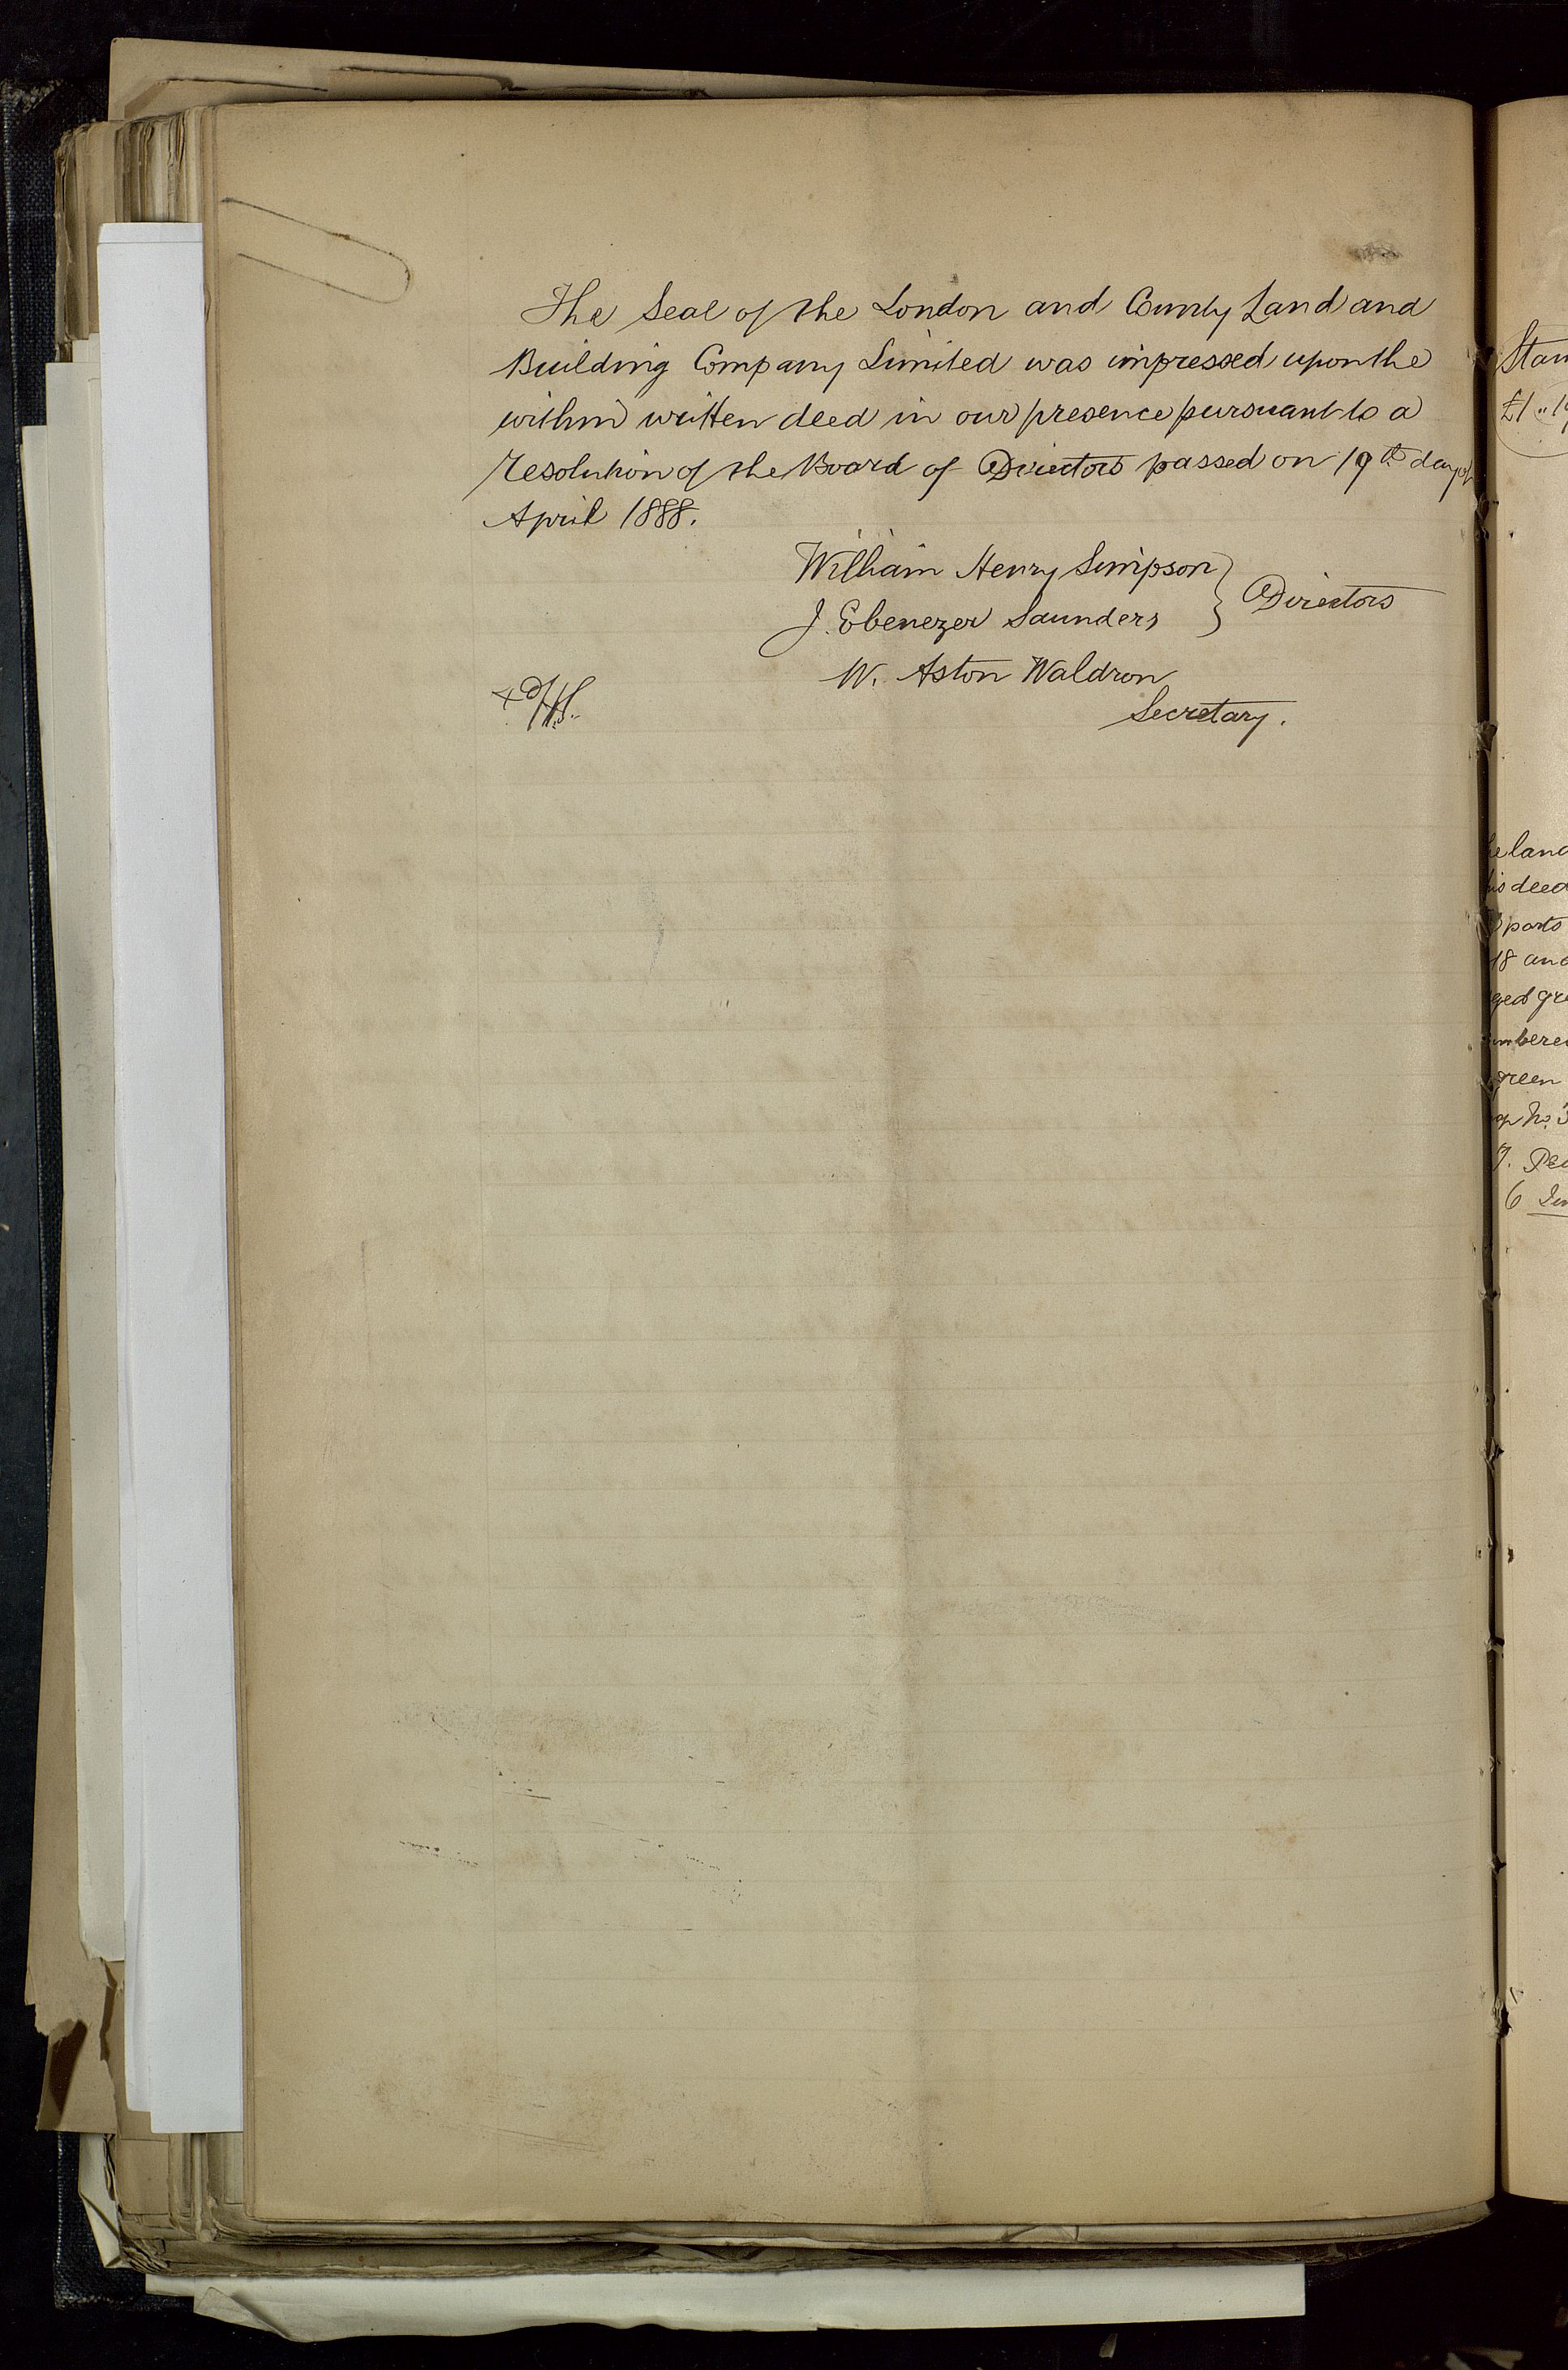 The Seal of the London and County Land and
Building Company Limited was impressed upon the
within written deed in our presence pursuant to a
resolution of the Board of Directors passed on 19th day of
April 1888.
William Henry Simpson
J. Ebenezer Saunders } Directors
W. Aston Waldron
Secretary.
£1 "
his deed
parts
18 and
green